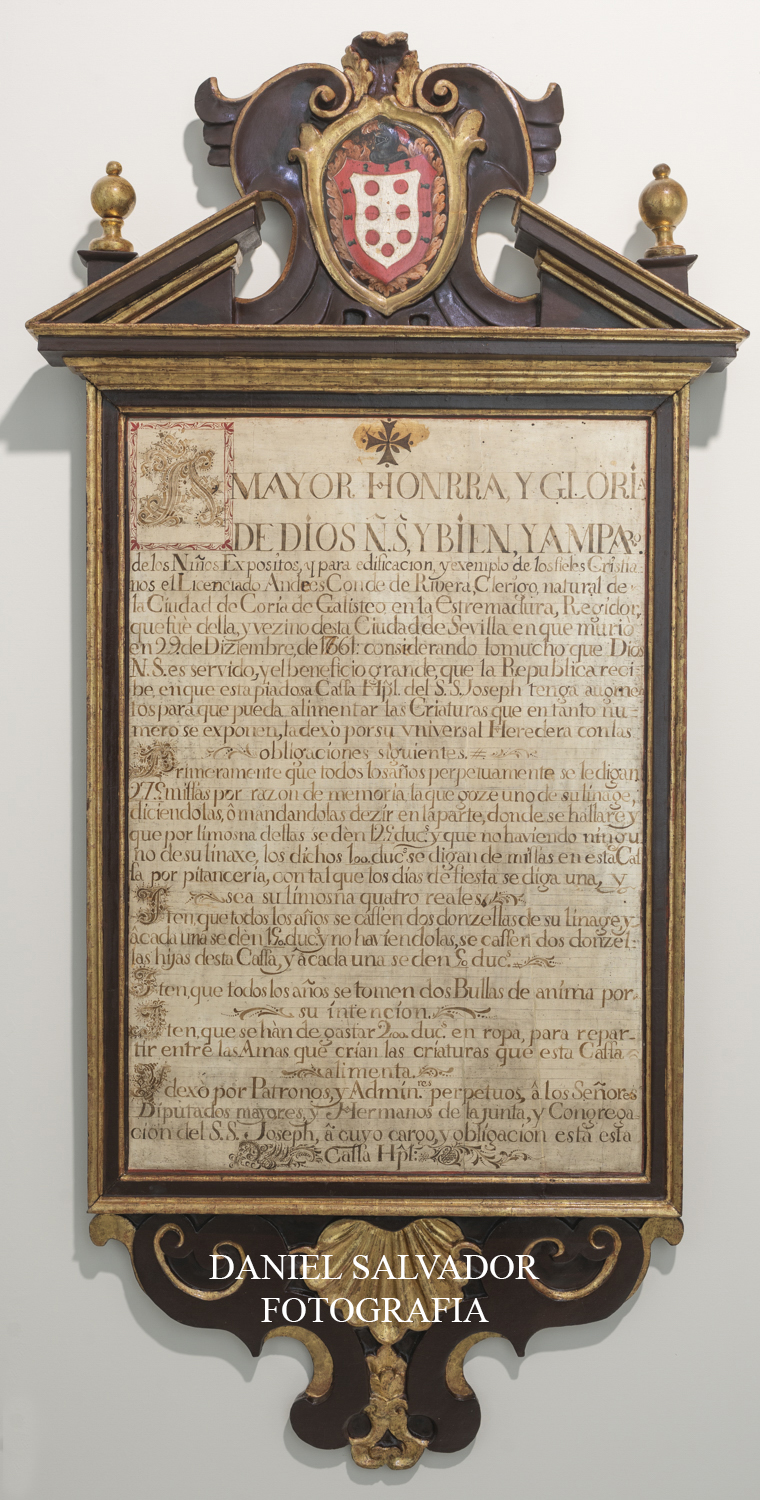 A MAYOR HONRRA, Y GLORIA
DE DIOS N. S., Y BIEN, Y AMPARo.
de los Niños Expositos, y para edificacion, y exemplo de los fieles Cristia-
nos el Licenciado Andres Conde de Rivera, Clerigo, natural de
la Ciudad de Coria de Galisteo en la Estremadura, Regidor,
que fuè della, y vezino desta Ciudad de Sevilla en que muriò
en 22 de Diziembre, de 1661: considerando lo mucho que Dios
N. S. es servido, y el beneficio grande, que la Republica reci-
be, en que esta piadosa Cassa Hpl. del S. S. Joseph tenga augmē-
tos para que pueda alimentar las Criaturas que en tanto nu-
mero se exponen, la dexò por su vniversal Heredera con las
obligaciones siguientes.
Primeramente que todos los años perpetuamente se le digan
missas por razon de memoria, la que goze uno de su linage,
diciendolas, ô mandandolas dezir en la parte, donde se hallare y
que por limosna dellas se dèn ducs. y que no haviendo ningu
no de su linaxe, los dichos ducs. se digan de missas en esta Cas
sa por pitanceria, con tal que los dias de fiesta se diga una, y
sea su limosna quatro reales.
Iten, que todos los años se cassen dos donzellas de su linage y
à cada una se dèn ducs. y no haviendolas, se cassen dos donzel-
las hijas desta Cassa, y à cada una se den ducs.
Iten, que todos los años se tomen dos Bullas de anima por
su intencion.
Iten, que se hàn de gastar ducs. en ropa, para repar-
tir entre las Amas que crian las criaturas que esta Cassa
alimenta.
Y dexò por Patronos, y Admin.res perpetuos, â los Señores
Diputados mayores, y Hermanos de la junta, y Congrega
cion del S. S. Joseph, â cuyo cargo, y obligacion està esta
Cassa Hpl:
DANIEL SALVADOR
FOTOGRAFIA